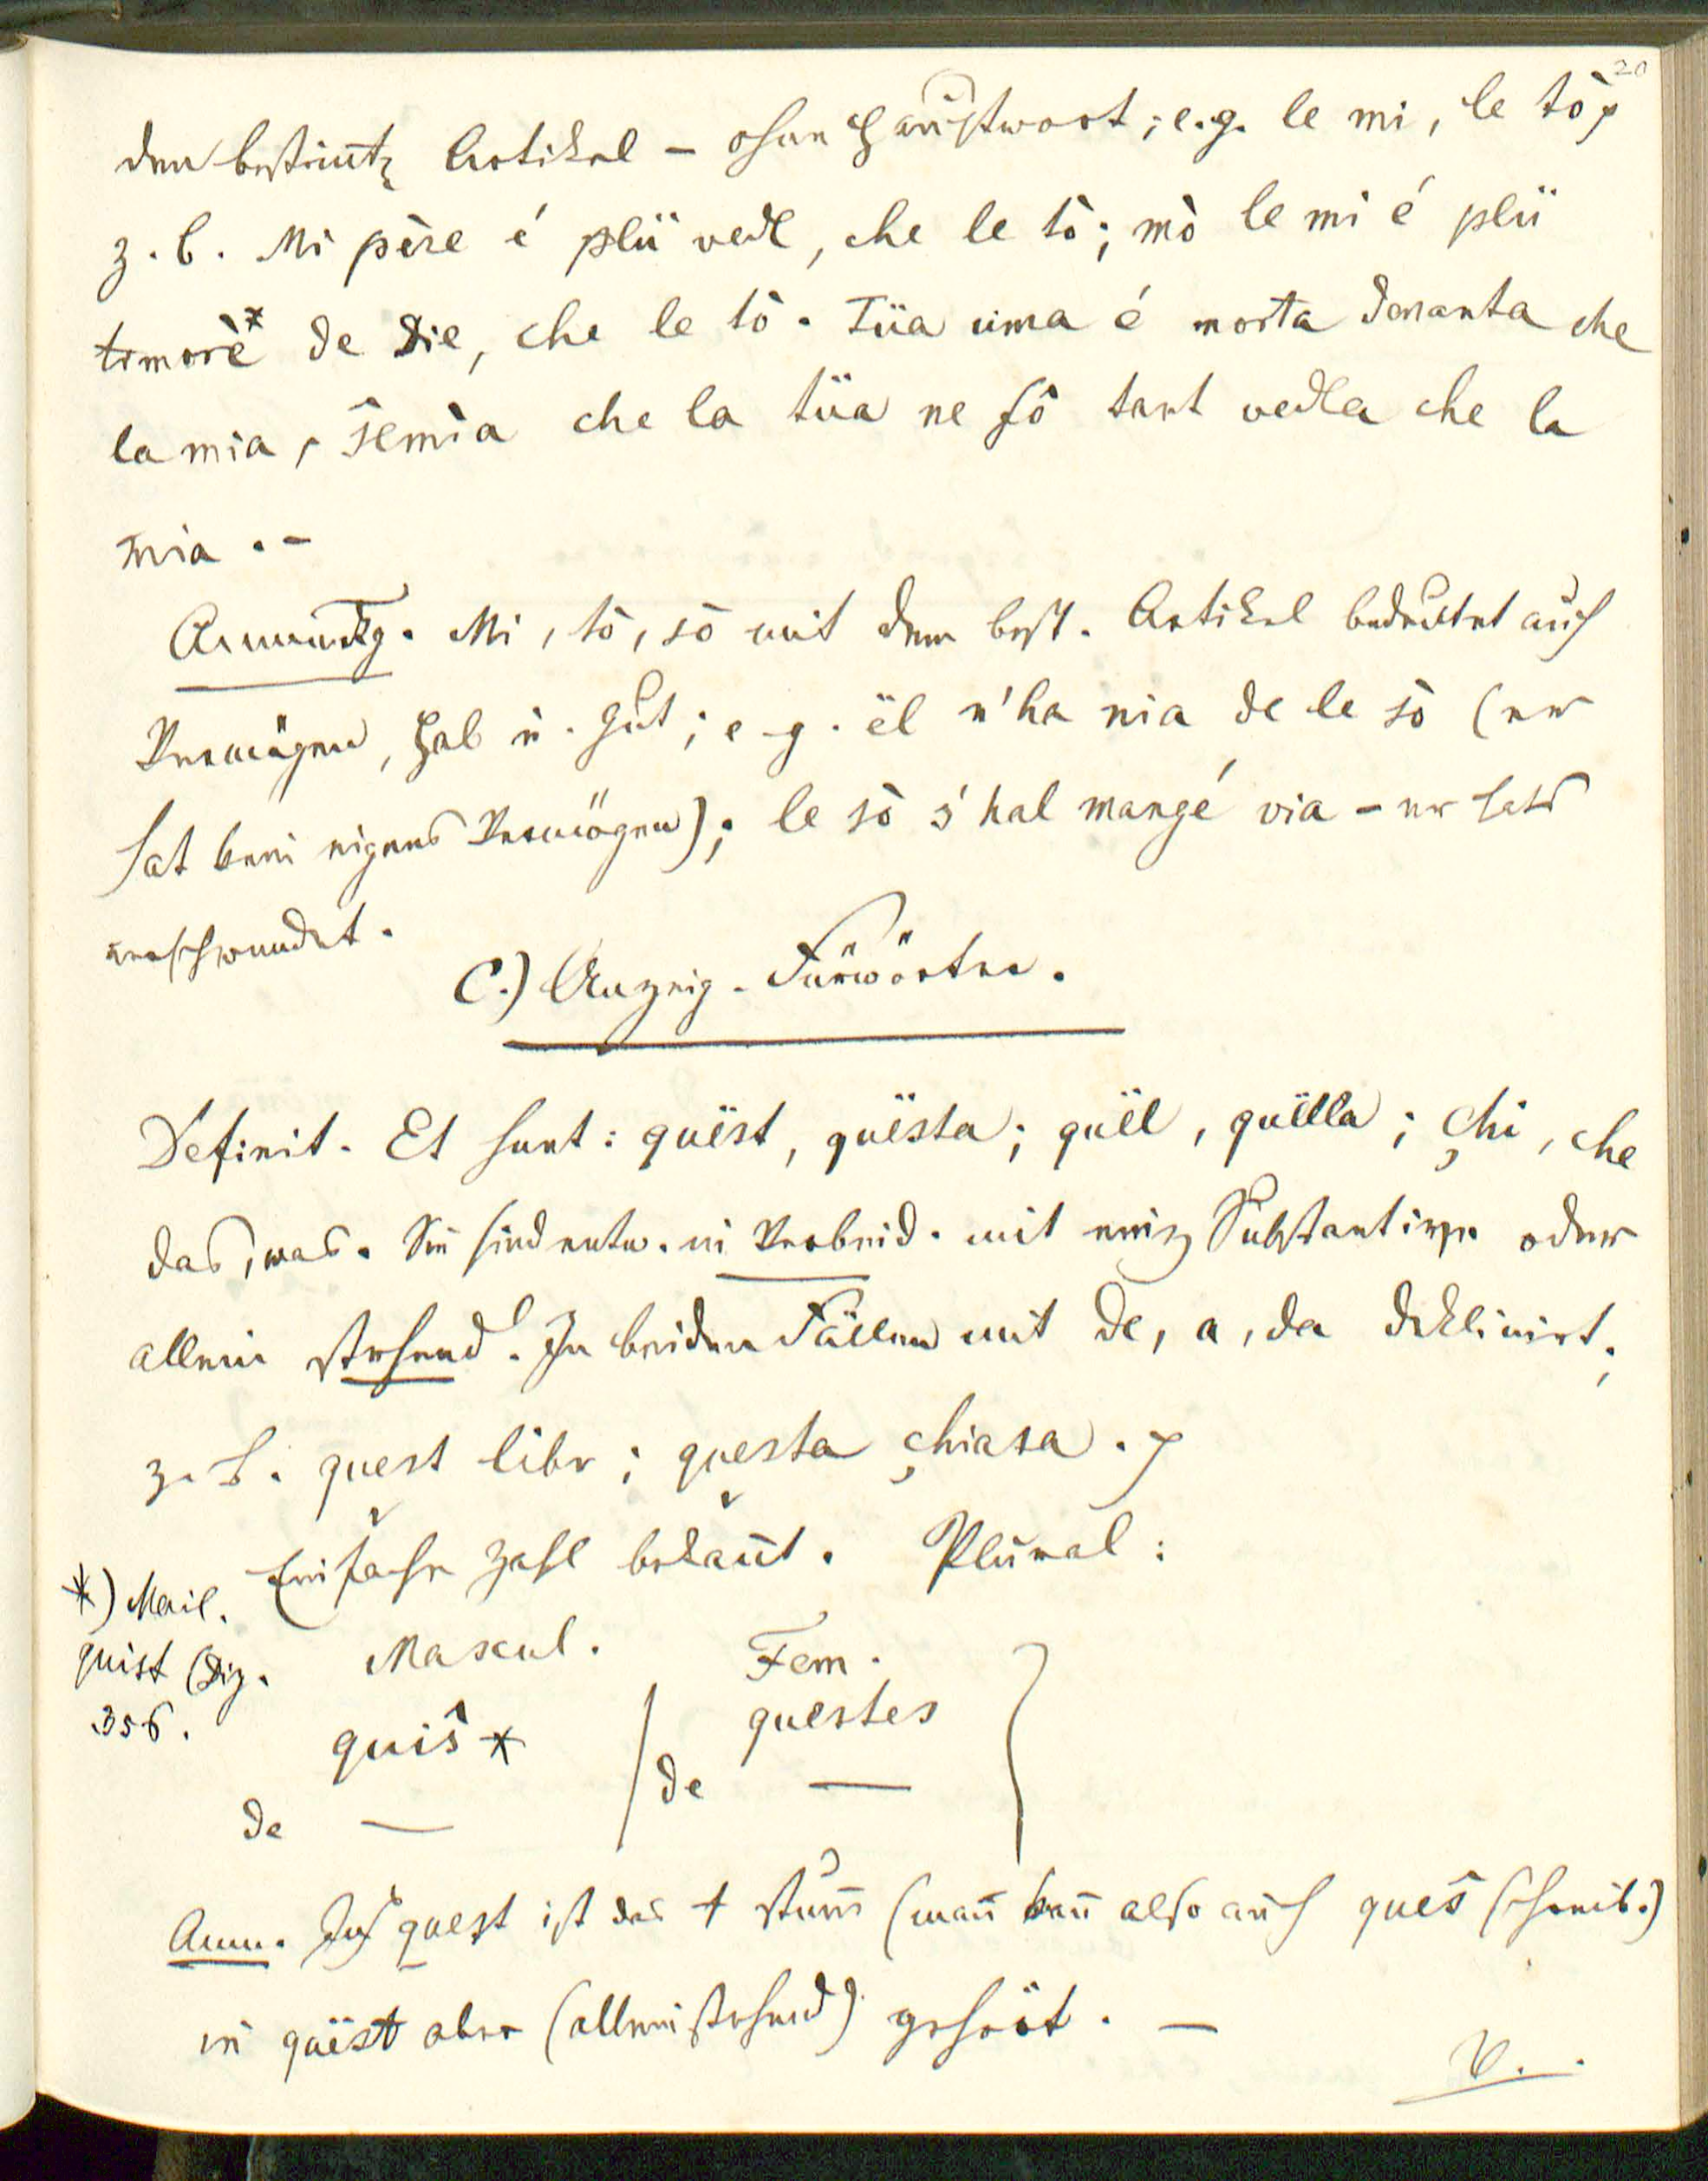 20
den bestim̄t. Artikel – ohne Hauptwort; e.g. le mi, le tò
z. b. Mi père é plü vedl, che le tò; mò le mi é plü
timorè* de Die, che le tò. Tüa uma é morta denanta che
la mia, šemia che la tüa ne fô tant vedla che la
mia. –
Anmerkg. Mi, tò, sò mit dem best. Artikel bedeutet auch
Vermögen, Hab u. Gut; e.g. ël n'ha nia de le sò (er
hat kein eigenes Vermögen); le sò s'hal mangé via – er hats
verschwendet.
C.) Anzeig-Fürwörter.
Definit. Et sunt: quëst, quësta; quël, quëlla; çhi, che
das, was. Sie sind entw. in Verbind. mit einem Substantiv. oder
allein stehend. In beiden Fällen mit de, a, da deklinirt;
z. B. quest libr; questa çhiasa.
Einfache Zahl bekan̄t. Plural:
*) Mail.
quist (Diz.
356.
Mascul. Fem.
quiš * questes
de — de —
Anm. In quest ist das t stum̄ (man̄ kan̄ also auch queš schreib.)
in quëst aber (alleinstehend) gehört. –
V.